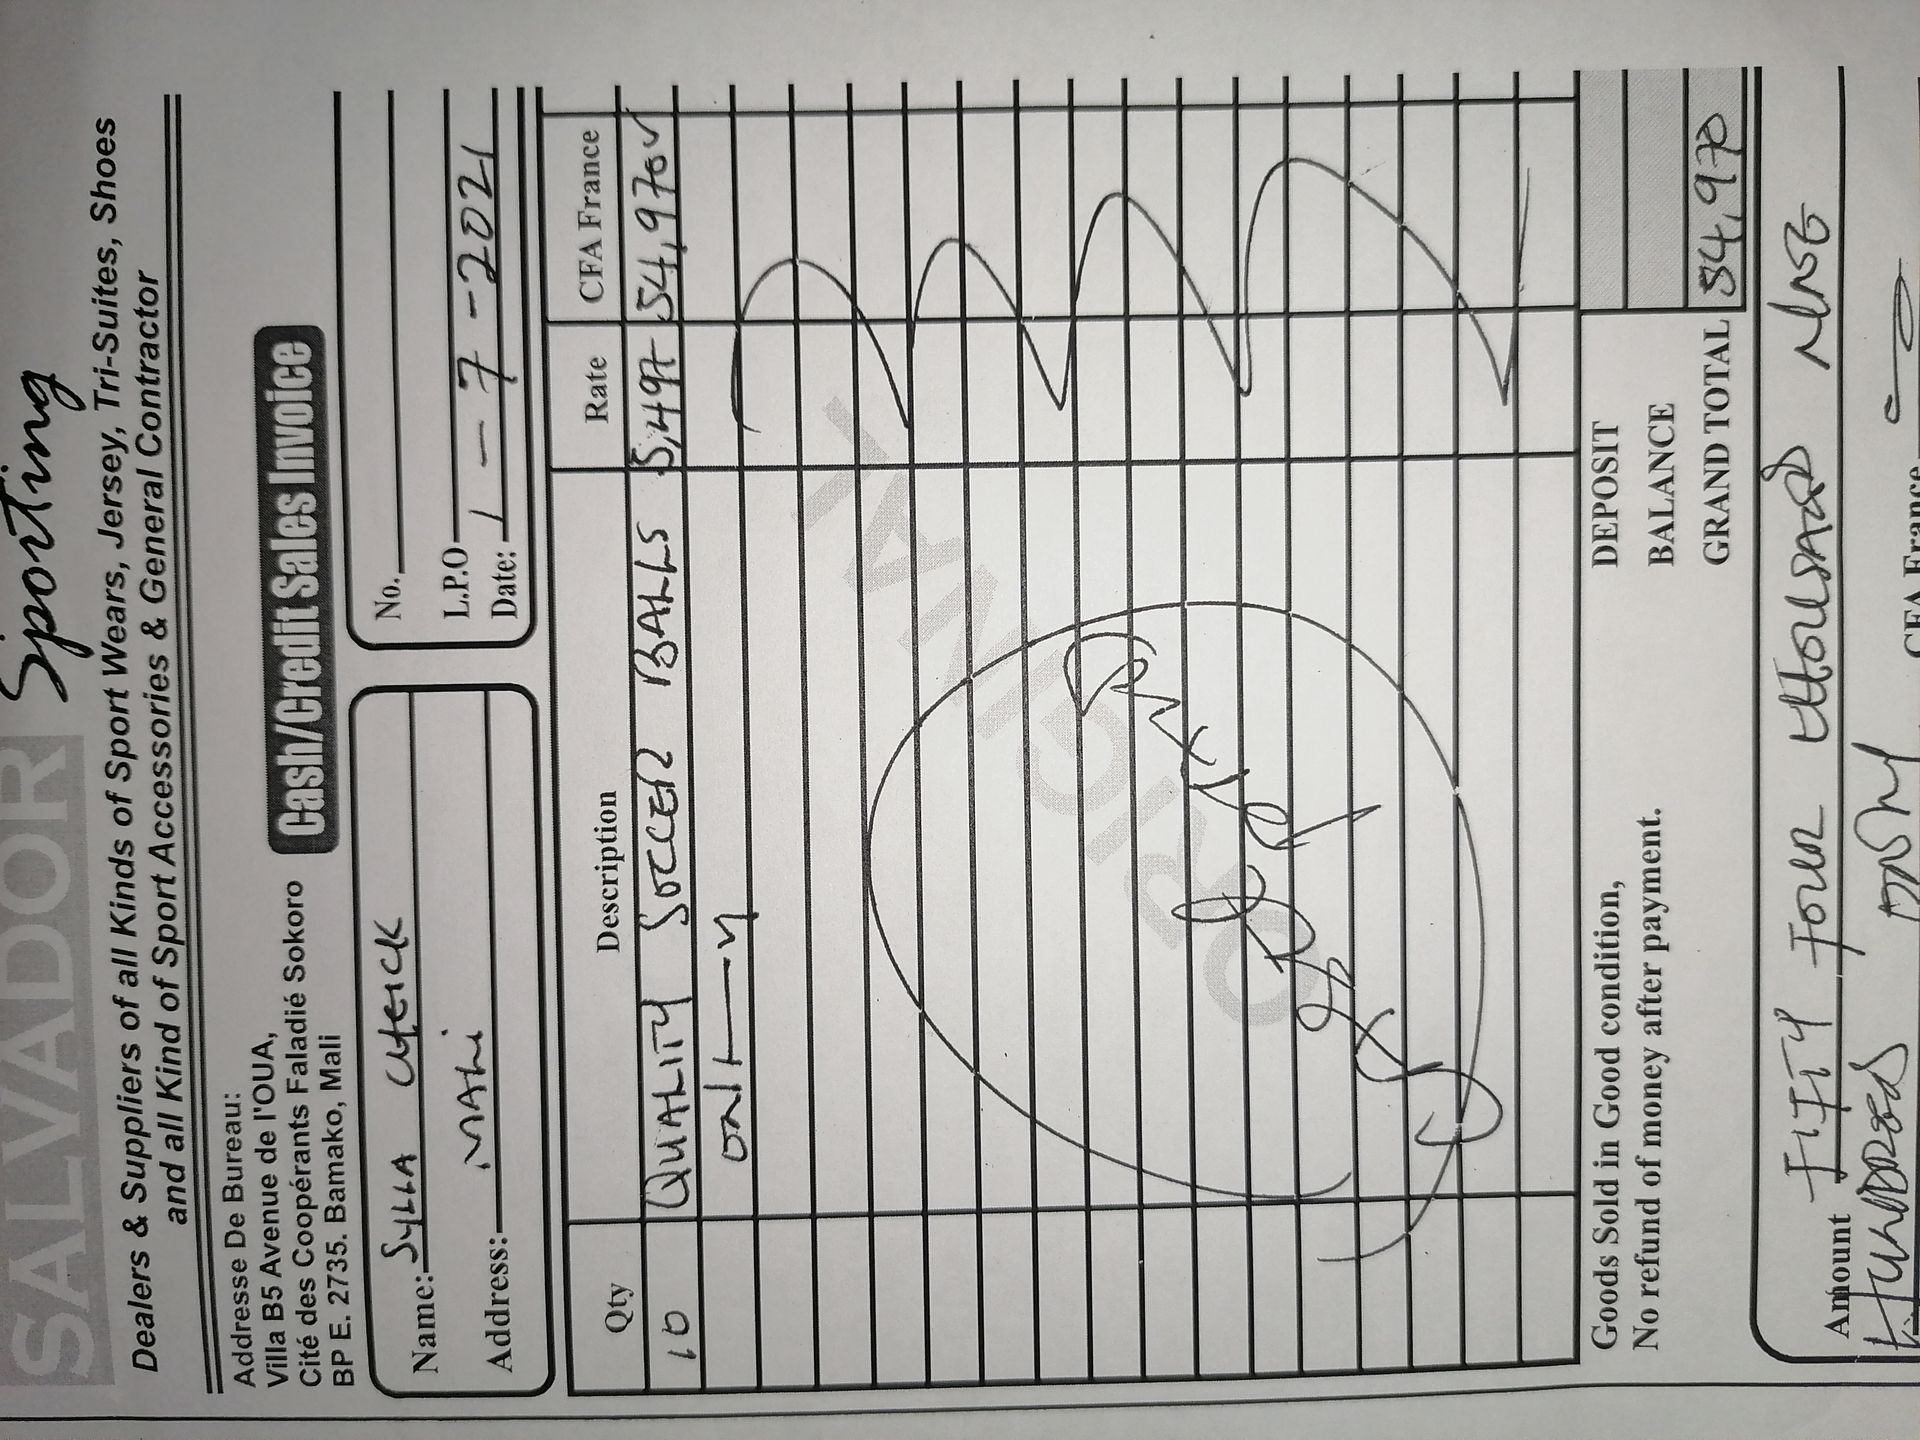 SALVADOR Sporting
Dealers & Suppliers of all Kinds of Sport Wears, Jersey, Tri-Suites, Shoes
and all Kind of Sport Accessories & General Contractor
Addresse De Bureau:
Villa B5 Avenue de l'OUA,
Cité des Coopérants Faladié Sokoro
BP E. 2735. Bamako, Mali
Cash/Credit Sales Invoice
Name: SYLLA CHEICK
Address: MALI
No.
L.P.O
Date: 1-7-2021
Qty Description Rate CFA France
10 QUALITY SOCCER BALLS 5,497 54,970
ONLY
ORIGINAL
Goods Sold in Good condition,
No refund of money after payment.
DEPOSIT
BALANCE
GRAND TOTAL 54,970
Amount FIFTY FOUR THOUSAND NINE
HUNDRED ONLY
CFA France